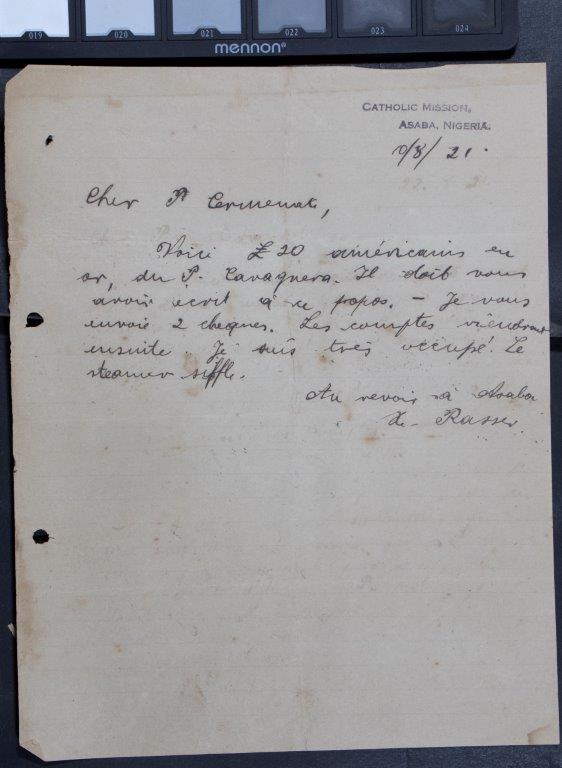 019 020 021 022 023 024
mennon®
CATHOLIC MISSION,
ASABA, NIGERIA.
10/8/21.
Cher P. Cermenati,
Voici £ 20 américains en
or, du P. Cavagnera. Il doit vous
avoir ecrit à ce propos. – Je vous
envoie 2 cheques. Les comptes viendront
ensuite. Je suis très occupé. Le
steamer siffle.
Au revoir à Asaba
Rasser.